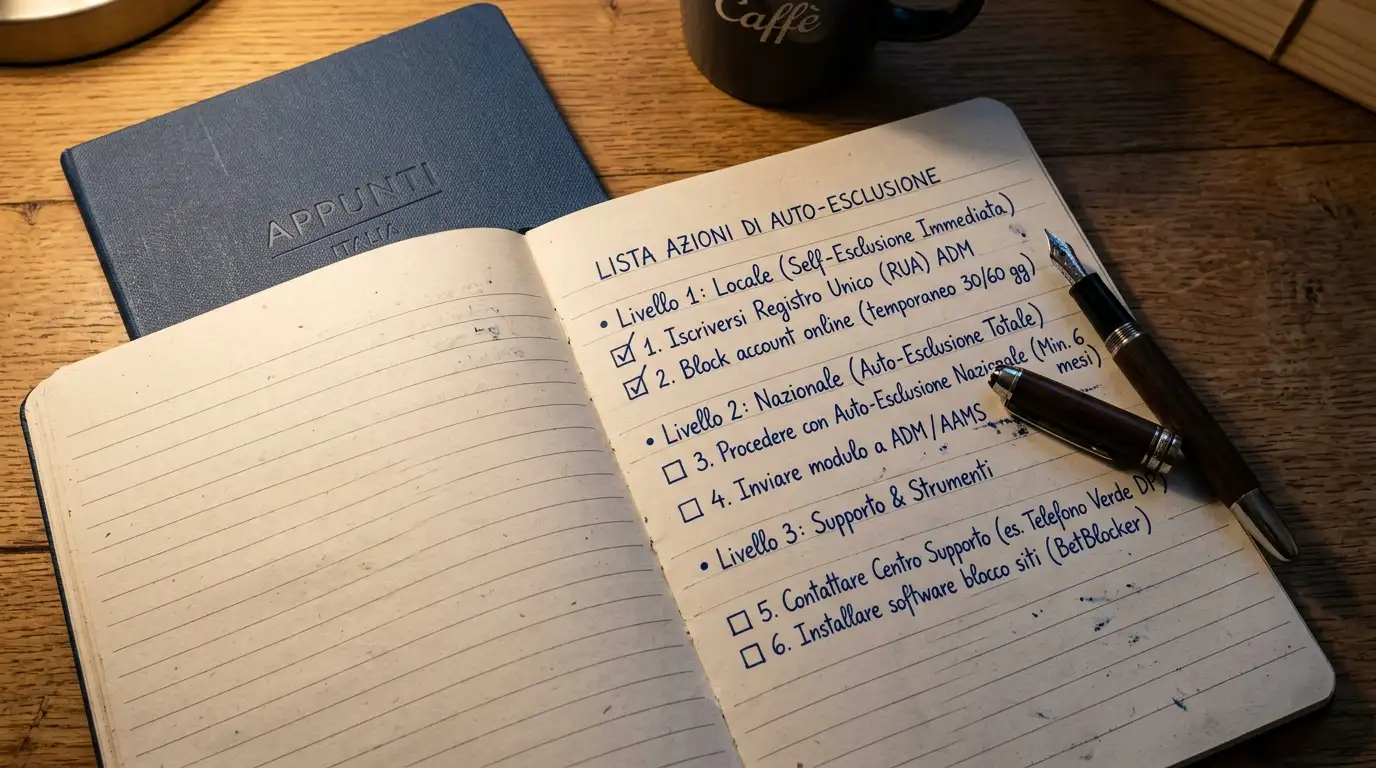 Caffè
APPUNTI
ITALIA
LISTA AZIONI DI AUTO-ESCLUSIONE
• Livello 1: Locale (Self-Esclusione Immediata)
☑ 1. Iscriversi Registro Unico (RUA) ADM
☑ 2. Block account online (temporaneo 30/60 gg)
• Livello 2: Nazionale (Auto-Esclusione Totale)
☐ 3. Procedere con Auto-Esclusione Nazionale (Min. 6 mesi)
☐ 4. Inviare modulo a ADM/AAMS
• Livello 3: Supporto & Strumenti
☐ 5. Contattare Centro Supporto (es. Telefono Verde DP)
☐ 6. Installare software blocco siti (BetBlocker)